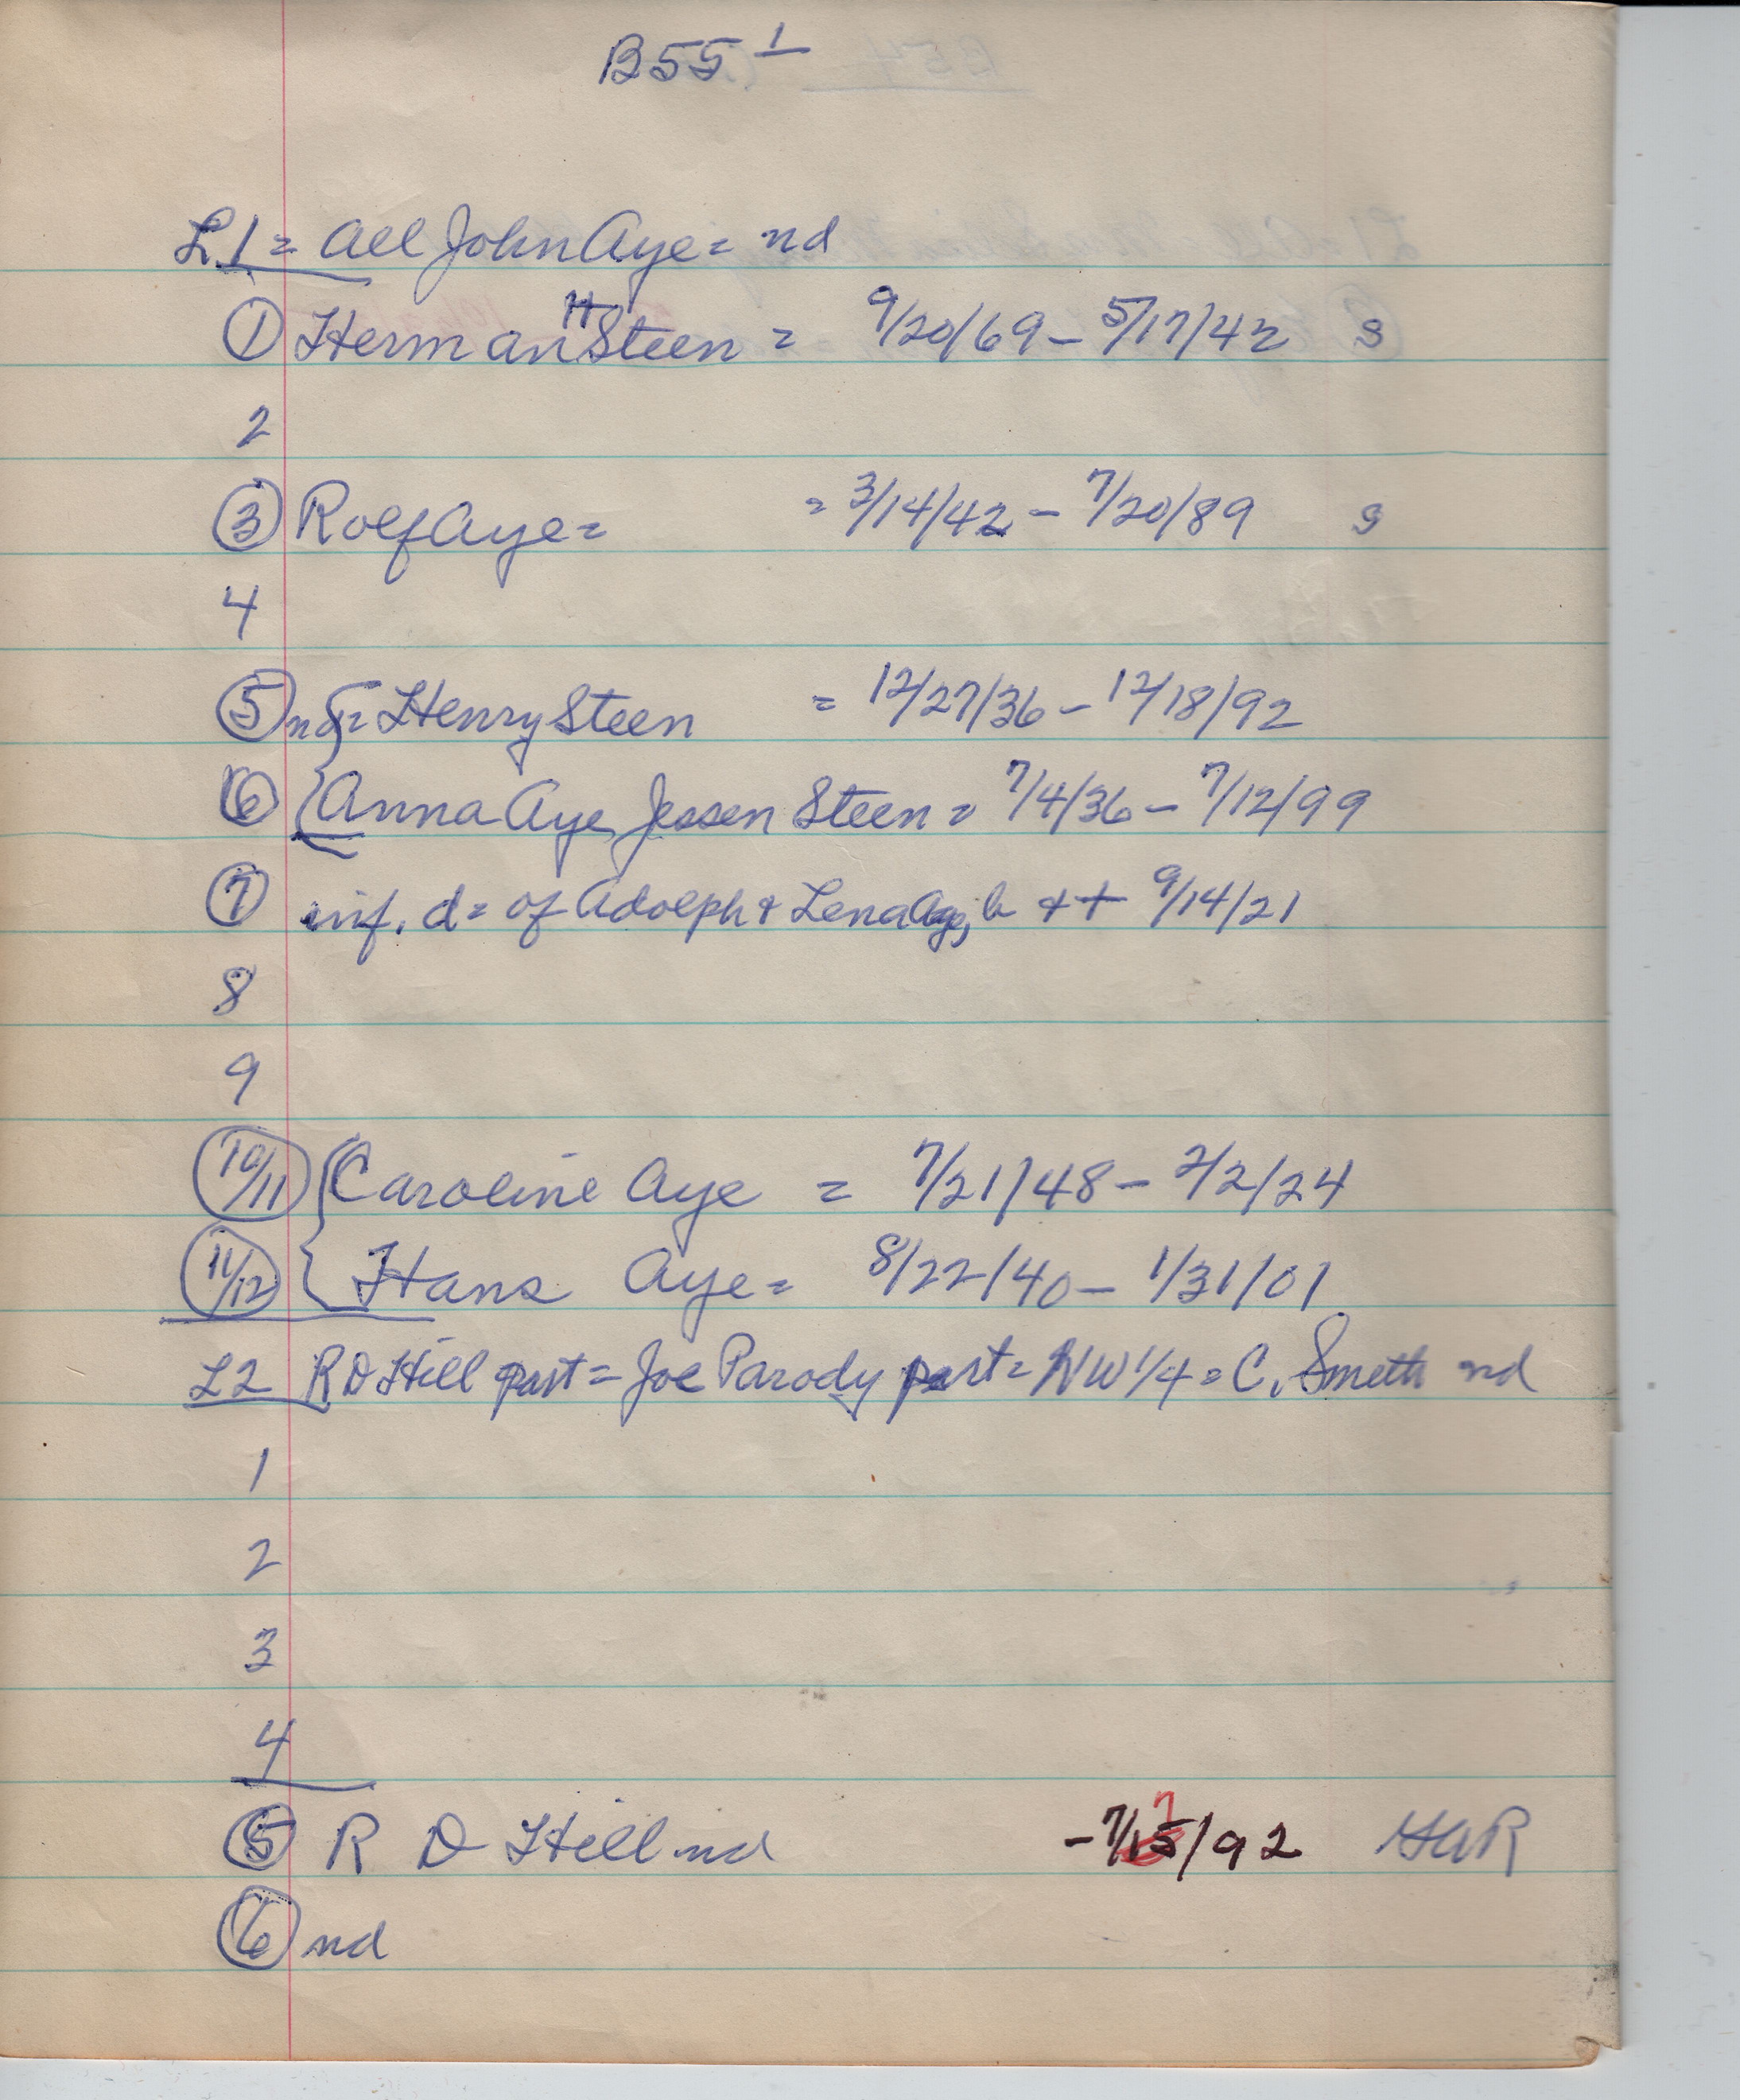 B55 1
L1 = All John Aye = nd
1 Herman H Steen = 9/20/69 - 5/17/42 s
2
3 Rolf Aye = = 3/14/42 - 7/20/89 s
4
5 nd = Henry Steen = 12/27/36 - 12/18/92
6 { Anna Aye Jessen Steen = 7/4/36 - 7/12/99
7 inf. d = of Adolph + Lena Aye, b + + 9/14/21
8
9
10/11 { Caroline Aye = 7/21/48 - 2/2/24
11/12 { Hans Aye = 8/22/40 - 1/31/01
L2 R D Hill part = Joe Parody part = NW 1/4 = C. Smith nd
1
2
3
4
5 R D Hill nd - 7/17/92 GAR
6 nd